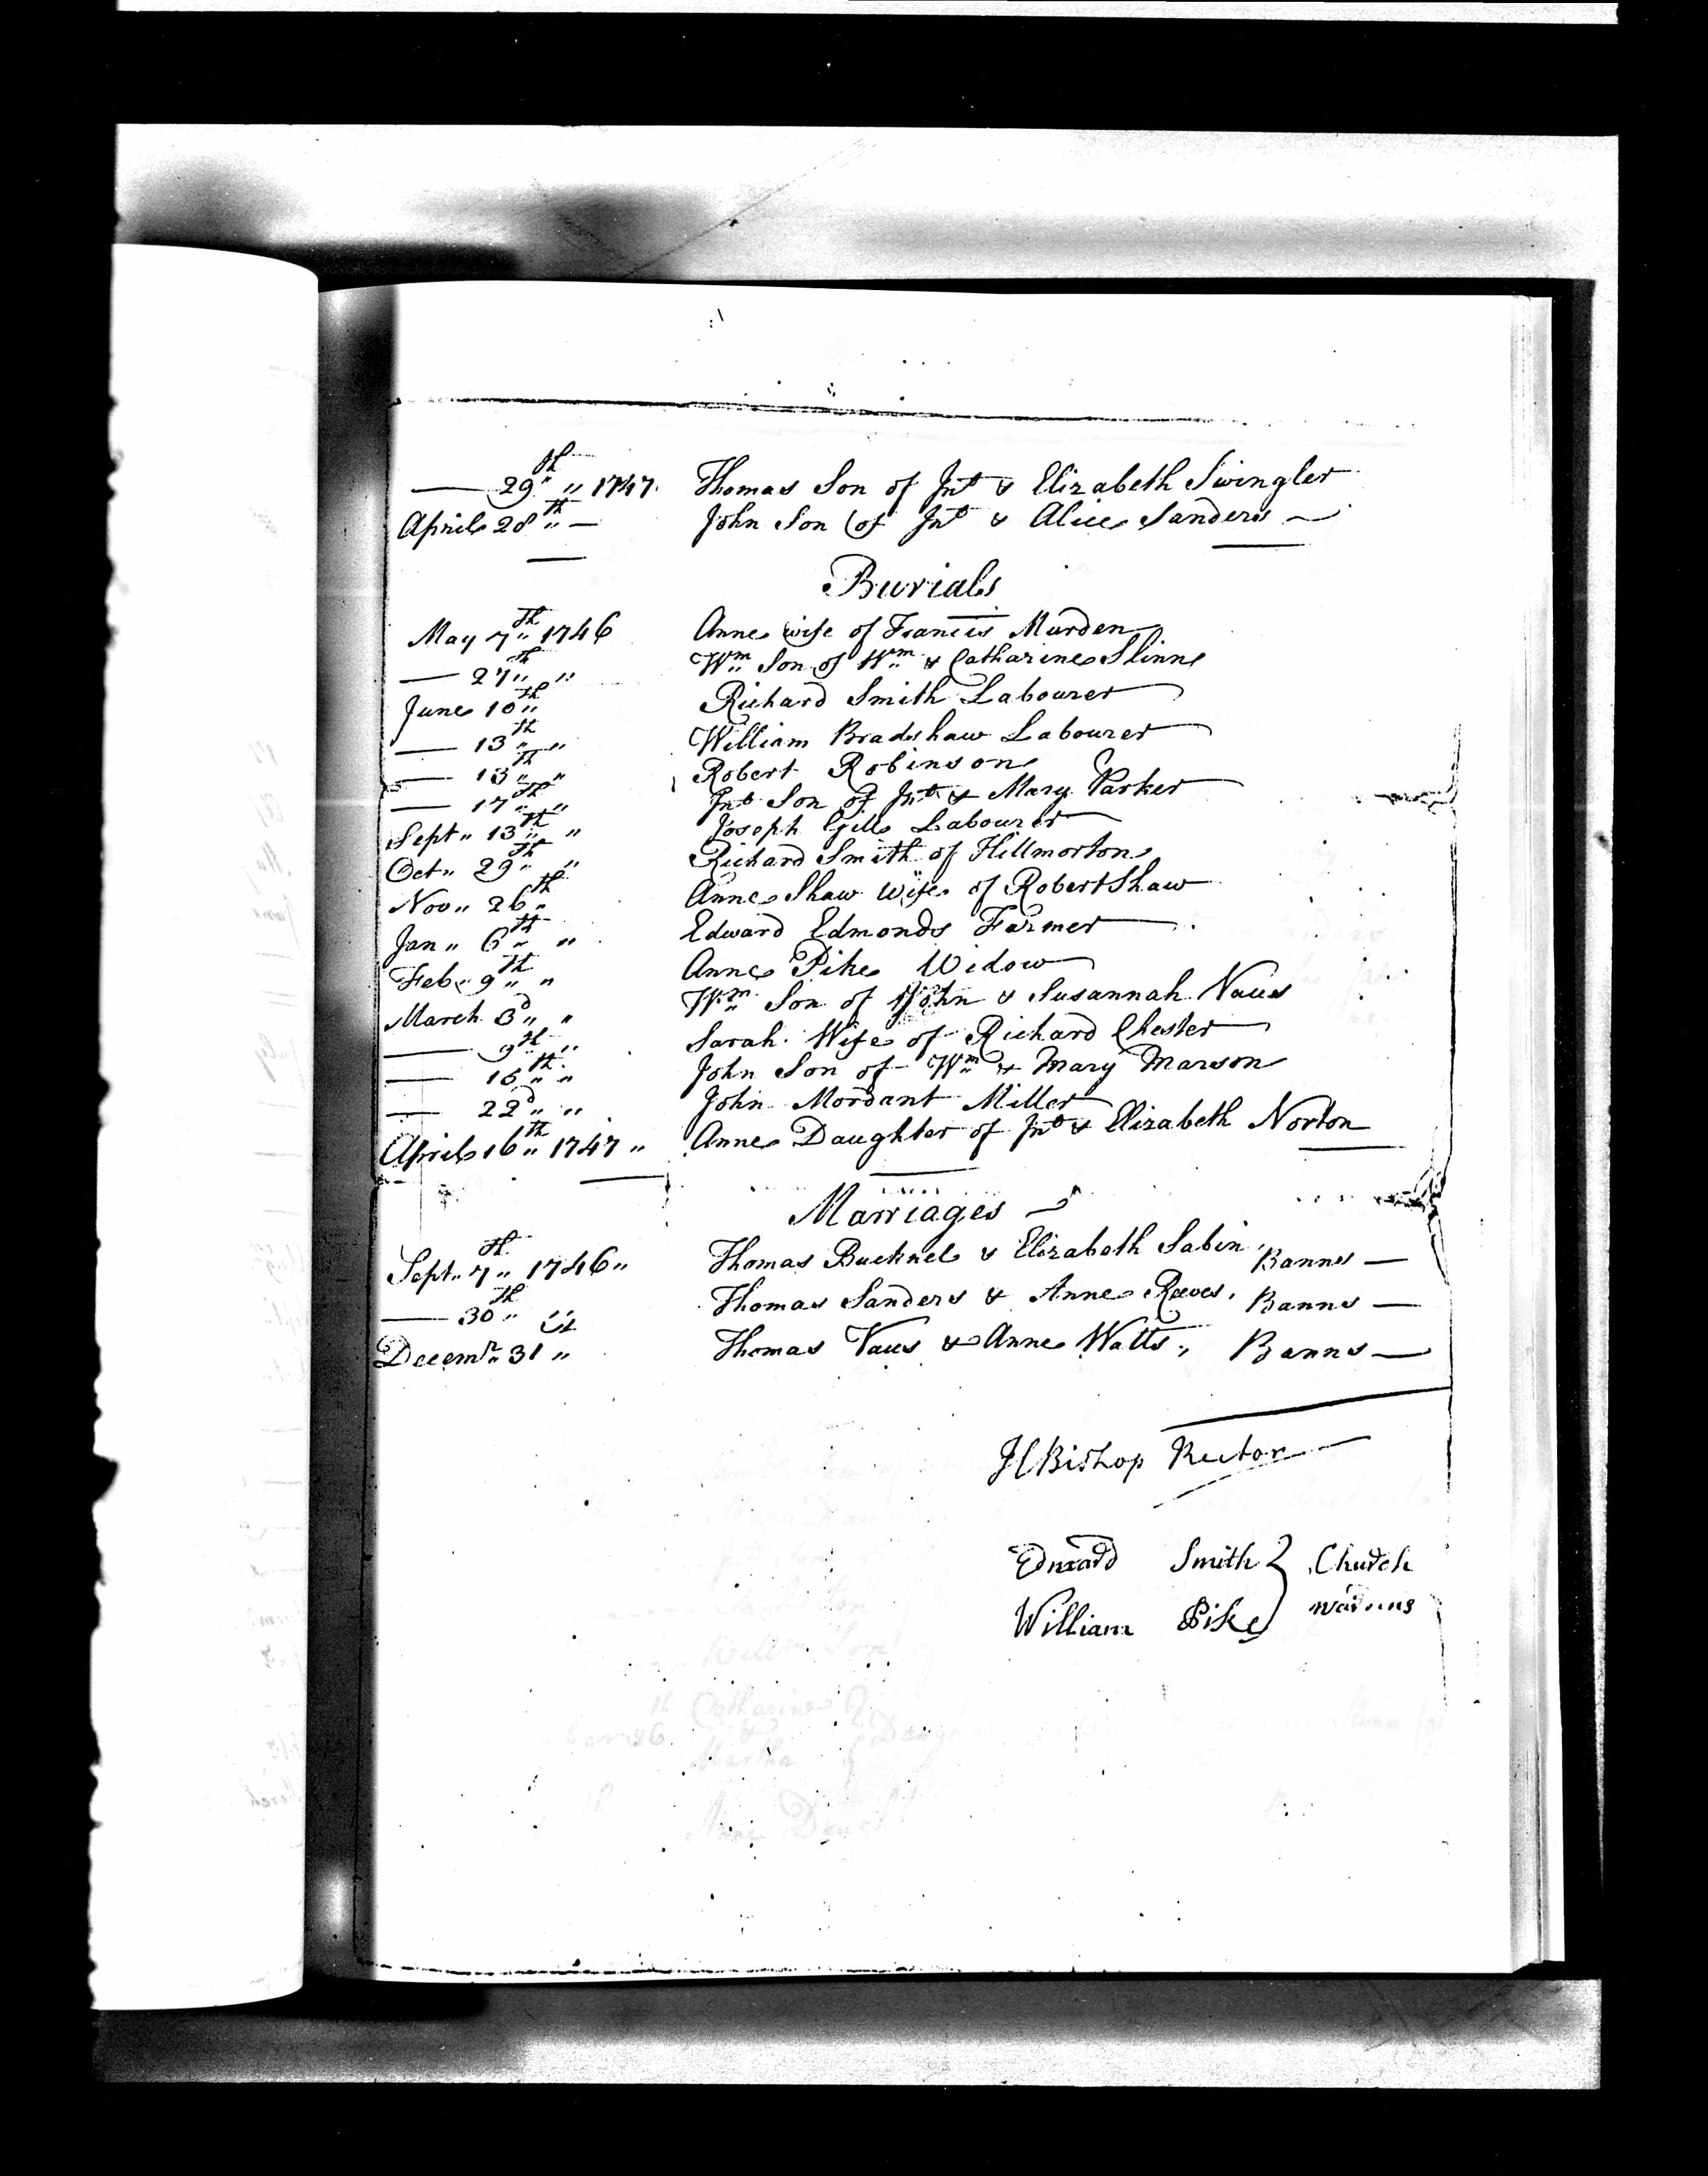 — 29th „ 1747. Thomas Son of Jno & Elizabeth Swingler
April 28th „ — John Son of Jno & Alice Sanders —
Burials
May 7th „ 1746 Anne wife of Francis Murden
— 27th „ „ Wm Son of Wm & Catharine Slinn
June 10th „ Richard Smith Labourer
— 13th „ „ William Bradshaw Labourer
— 13th „ „ Robert Robinson
— 17th „ „ Jno Son of Jno & Mary Parker
Sept „ 13th „ „ Joseph Gills Labourer
Oct „ 29th „ „ Richard Smith of Hillmorton
Nov „ 26th „ Anne Shaw Wife of Robert Shaw
Jan „ 6th „ „ Edward Edmonds Farmer
Feb „ 9th „ „ Anne Pike Widow
March 3d „ „ Wm Son of John & Susannah Vaus
— 9th „ Sarah Wife of Richard Chester
— 16th „ „ John Son of Wm & Mary Marson
— 22d „ „ John Mordant Miller
April 16th „ 1747 „ Anne Daughter of Jno & Elizabeth Norton
Marriages
Sept „ 7th „ 1746 „ Thomas Bucknel & Elizabeth Sabin, Banns —
— 30th „ Thomas Sanders & Anne Reeves, Banns —
Decemr 31st „ Thomas Vaus & Anne Watts, Banns —
Bishop Rector
Edward Smith } Church
William Pike } wardens